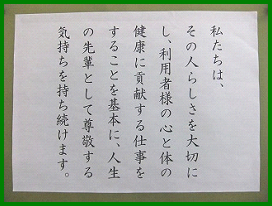 私たちは、
その人らしさを大切に
し、利用者様の心と体の
健康に貢献する仕事を
することを基本に、人生
の先輩として尊敬する
気持ちを持ち続けます。